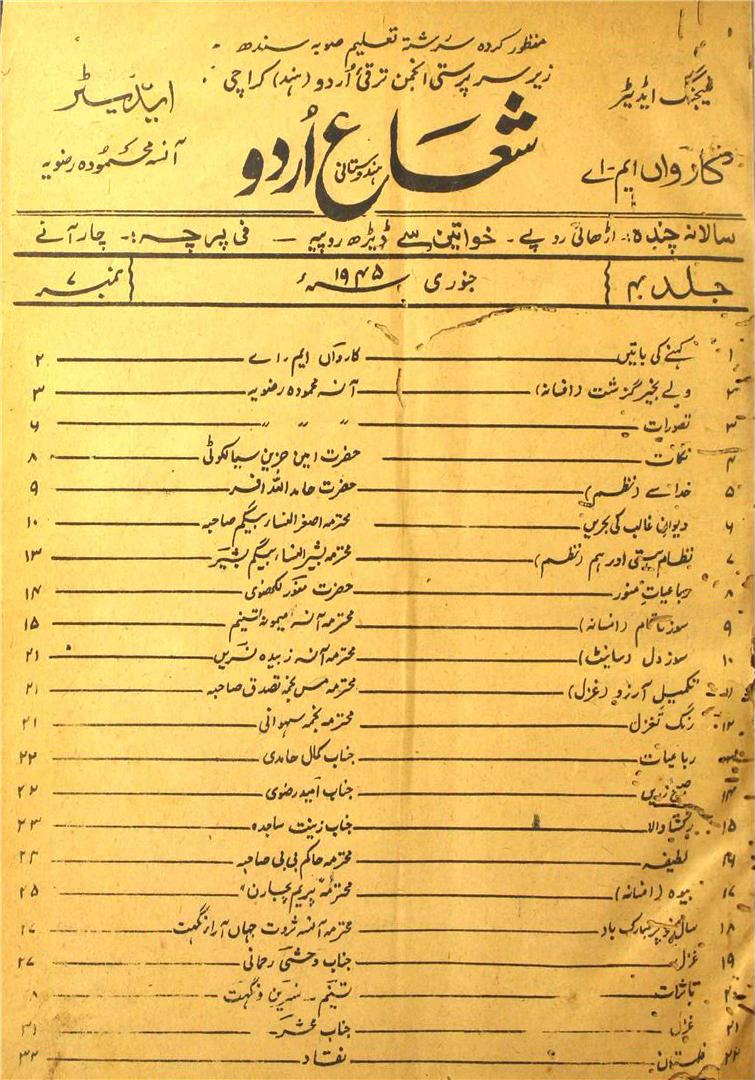 منظور کردہ سررشتۂ تعلیم صوبہ سندھ
زیر سرپرستی انجمن ترقی اُردو (ہند) کراچی
ایڈیٹر
کارواں ایم۔اے
شعاع اُردو
ہندوستانی
ایڈیٹر
آنسہ محمودہ رضویہ
سالانہ چندہ:۔ اڑھائی روپے۔ خواتین سے ڈیڑھ روپیہ — فی پرچہ:۔ چار آنے
جلد ۴ جنوری ۱۹۴۵ء نمبر ۷
۱ کہنے کی باتیں کارواں ایم۔اے ۲
۲ ولے بخیر گزشت (افسانہ) آنسہ محمودہ رضویہ ۳
۳ تصورات " " " ۶
۴ نکات حضرت امین حزین سیالکوٹی ۸
۵ خدا سے (نظم) حضرت حامد اللہ افسر ۹
۶ دیوان غالب کی بحریں محترمہ اصغر النساء بیگم صاحبہ ۱۰
۷ نظام ہستی اور ہم (نظم) محترمہ بشیر النساء بیگم بشیر ۱۳
۸ رباعیات منور حضرت منور لکھنوی ۱۴
۹ سوز ناتمام (افسانہ) محترمہ آنسہ میمونہ تسنیم ۱۵
۱۰ سوز دل (سانیٹ) محترمہ آنسہ زبیدہ نسریں ۲۱
۱۱ تکمیل آرزو (غزل) محترمہ مس نجمہ تصدق صاحبہ ۲۱
۱۲ رنگ تغزل محترمہ نجمہ سہوانی ۲۱
رباعیات جناب کمال حامدی ۲۲
۱۴ صبح جناب امید رضوی ۲۲
۱۵ رکشا والا جناب زینت ساجدہ ۲۳
۱۶ لطیفہ محترمہ حاکم بی بی صاحبہ ۲۴
۱۷ بیوہ (افسانہ) محترمہ "پریم پجارن" ۲۵
۱۸ سال نو پر مبارک باد محترمہ آنسہ ثروت جہاں آراز نگہت ۲۷
۱۹ غزل جناب وحشی رحمانی ۲۷
۲۰ تاثرات تسنیم۔ نسرین و نگہت
۲۱ غزل جناب محشر ۳۱
۲۲ فلمستان نقاد ۳۲